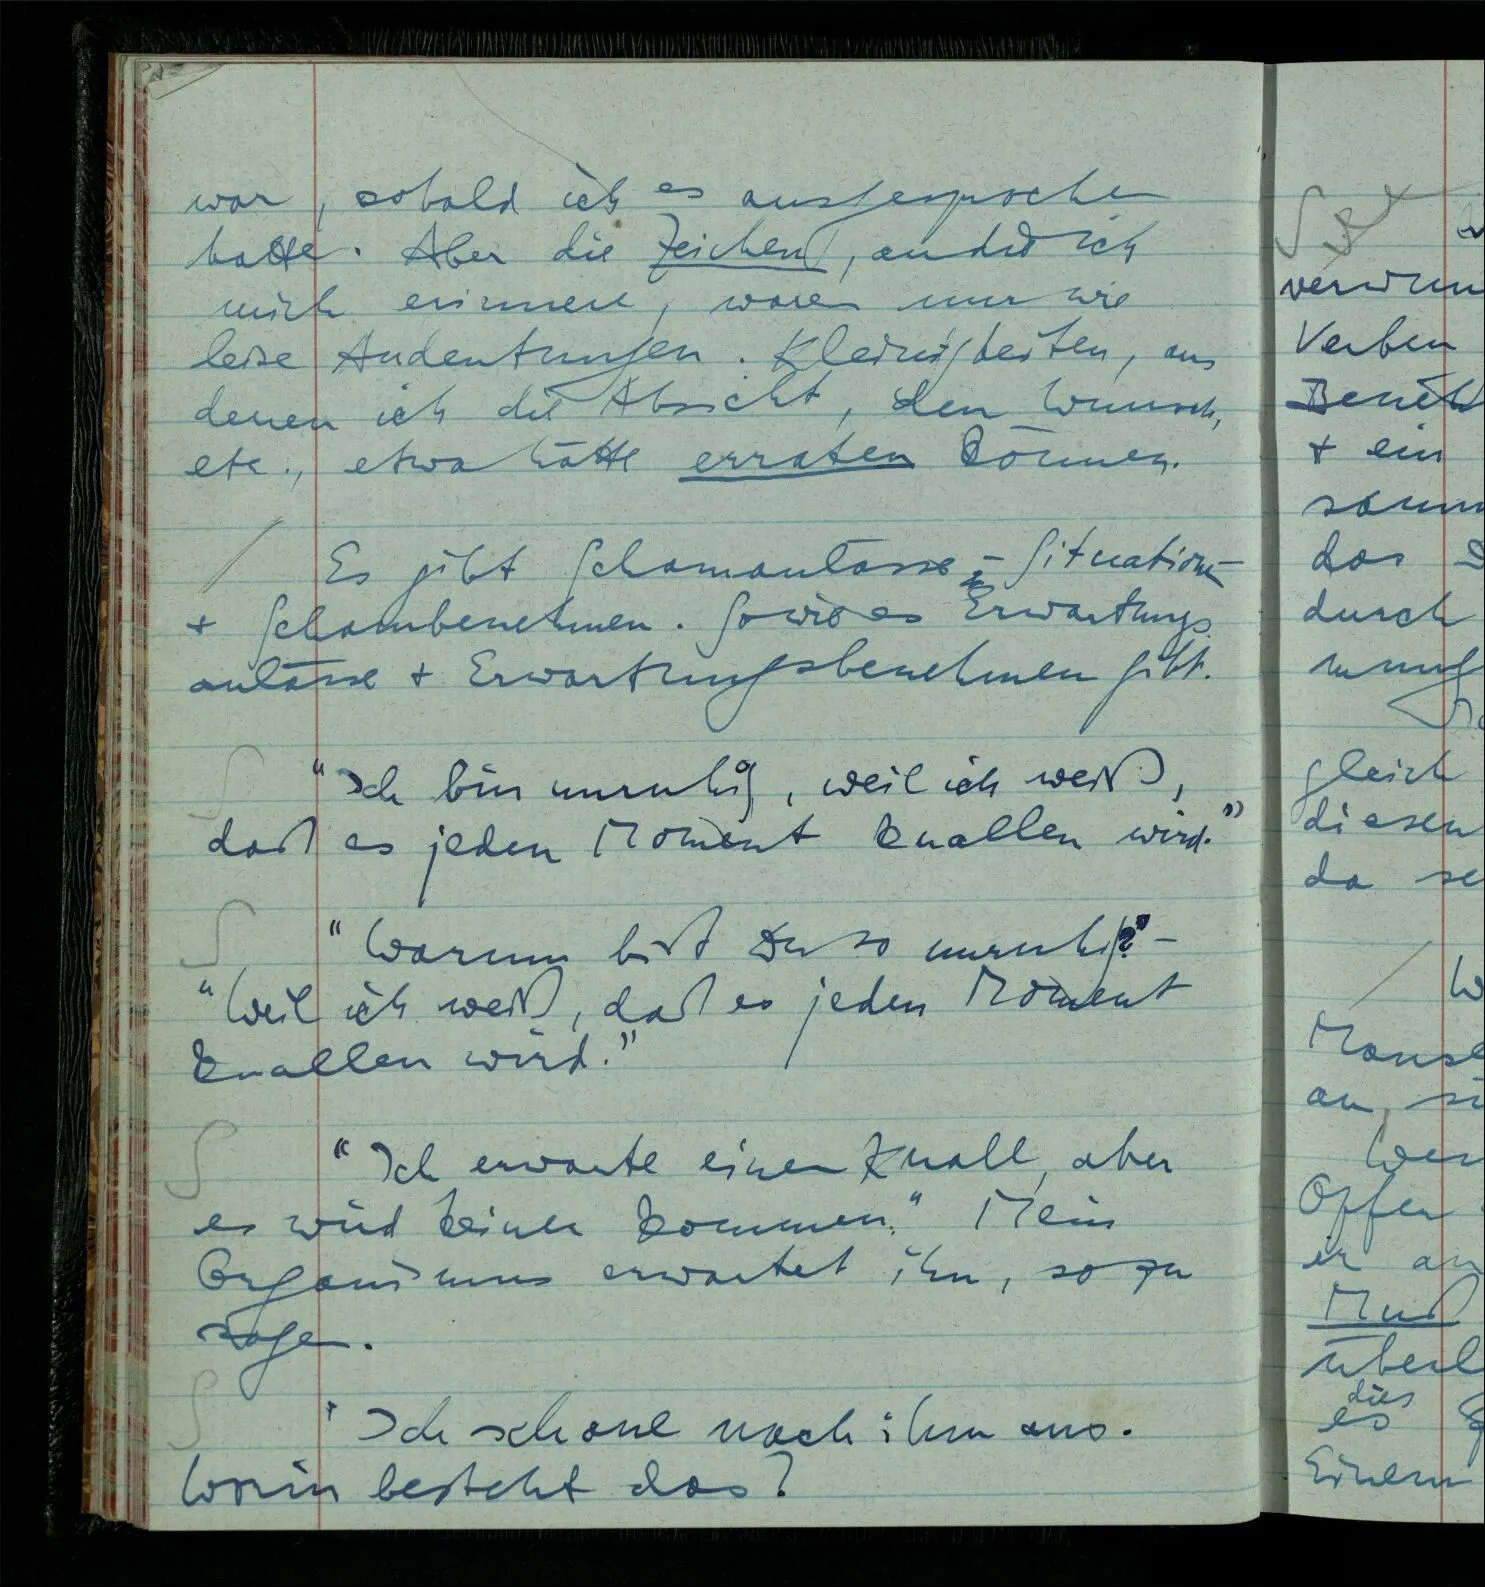 war, sobald ich es ausgesprochen
hatte. Aber die Zeichen, an die ich
mich erinnere, waren nur wie
leise Andeutungen. Kleinigkeiten, aus
denen ich die Absicht, den Wunsch,
etc., etwa hätte erraten können.
/ Es gibt Schamanlässe, - Situationen
+ Schambenehmen. Sowie es Erwartungs
anlässe + Erwartungsbenehmen gibt.
∫ “Ich bin unruhig, weil ich weiß,
daß es jeden Moment knallen wird.”
∫ “Warum bist Du so unruhig?” –
“Weil ich weiß, daß es jeden Moment
knallen wird.”
∫ “Ich erwarte einen Knall, aber
es wird keiner kommen.” Mein
Organismus erwartet ihn, so zu
sagen.
∫ ' Ich schaue nach ihm aus.
Worin besteht das?
Verben
+ ein
durch
gleich
diesen
da
an
Opfer
er
Muß
dies
es
Einem